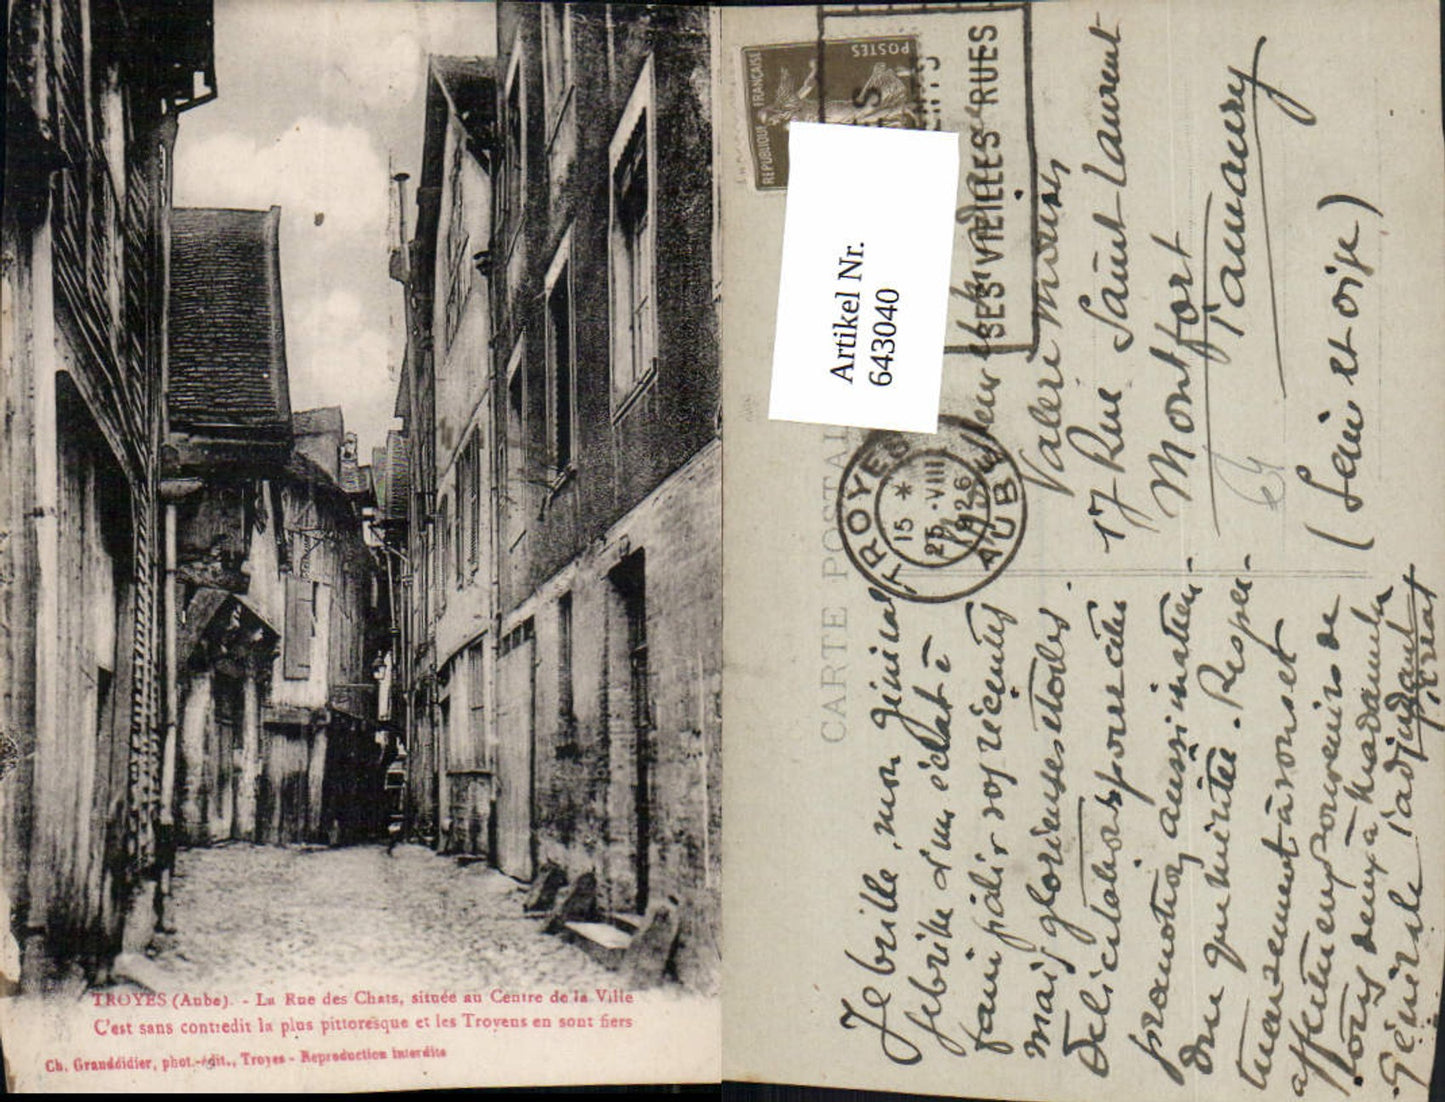 TROYES (Aube). - La Rue des Chats, située au Centre de la Ville
C'est sans contredit la plus pittoresque et les Troyens en sont fiers
Ch. Granddidier, phot.-édit., Troyes - Reproduction interdite
POSTES
REPUBLIQUE FRANÇAISE
SES VIEILLES RUES
Artikel Nr.
643040
TROYES
15 *
25 -VIII
1926
AUBE
CARTE POSTAL
Valeri
17 Rue Saint Laurent
Montfort
l'amaury
(Seine et oise)
Je brille, mon Général
je brille d'un éclat à
faire pâlir vos récentes
mais glorieuses étoiles.
Félicitations pour cette
promotion aussi inatten-
due que méritée. Respec-
tueusement à vous et
affectueux souvenirs de
tous deux à Madame la
Générale l'adjudant